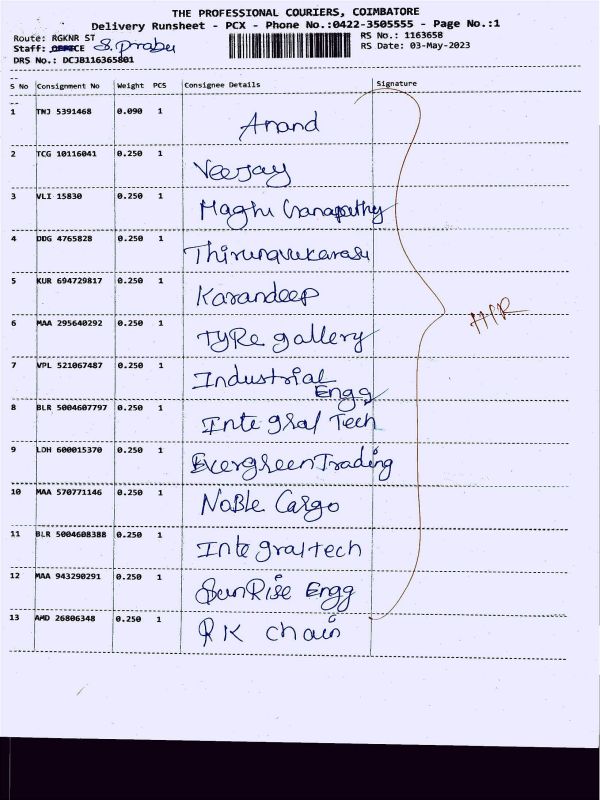 THE PROFESSIONAL COURIERS, COIMBATORE
Delivery Runsheet - PCX - Phone No.:0422-3505555 - Page No.:1
Route: RGKNR ST
RS No.: 1163658
Staff: OFFICE S. Prabu
RS Date: 03-May-2023
DRS No.: DCJB116365801
S No Consignment No Weight PCS Consignee Details Signature
1 TNJ 5391468 0.090 1 Anand
2 TCG 10116041 0.250 1 Veejay
3 VLI 15830 0.250 1 Maghu Ganapathy
4 DDG 4765828 0.250 1 Thirunavukarasu
5 KUR 694729817 0.250 1 Karandeep
6 MAA 295640292 0.250 1 TyRe gallery
7 VPL 521067487 0.250 1 Industrial Engg
8 BLR 5004607797 0.250 1 Integral Tech
9 LDH 600015370 0.250 1 Evergreen Trading
10 MAA 570771146 0.250 1 NoBle Cargo
11 BLR 5004608388 0.250 1 Integraltech
12 MAA 943290291 0.250 1 SunRise Engg
13 AMD 26806348 0.250 1 RK chain